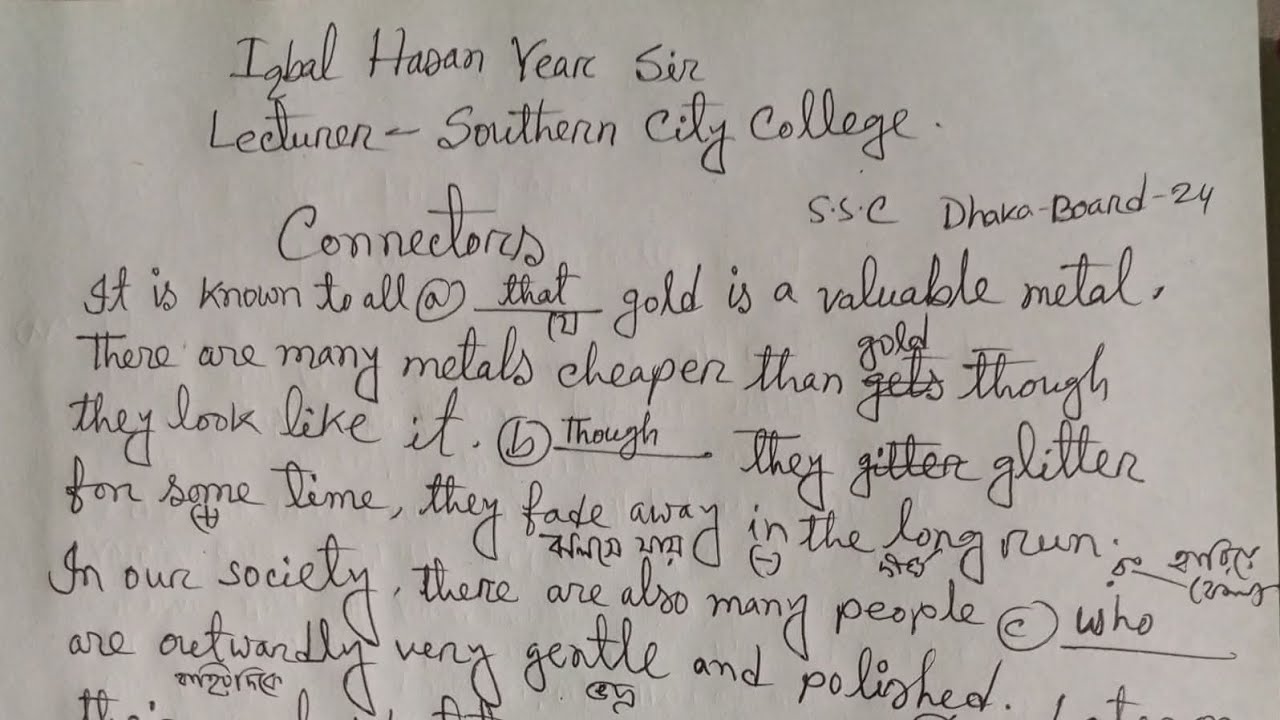 Iqbal Hasan Year Sir
Lecturer - Southern City College.
S.S.C Dhaka-Board-24
Connectors
It is known to all (a) that gold is a valuable metal.
(যে)
There are many metals cheaper than gets gold though
they look like it. (b) Though they gitter glitter
for some time, they fade away in the long run.
(+) (-)
In our society, there are also many people (c) who
are outwardly very gentle and polished.
ভদ্র